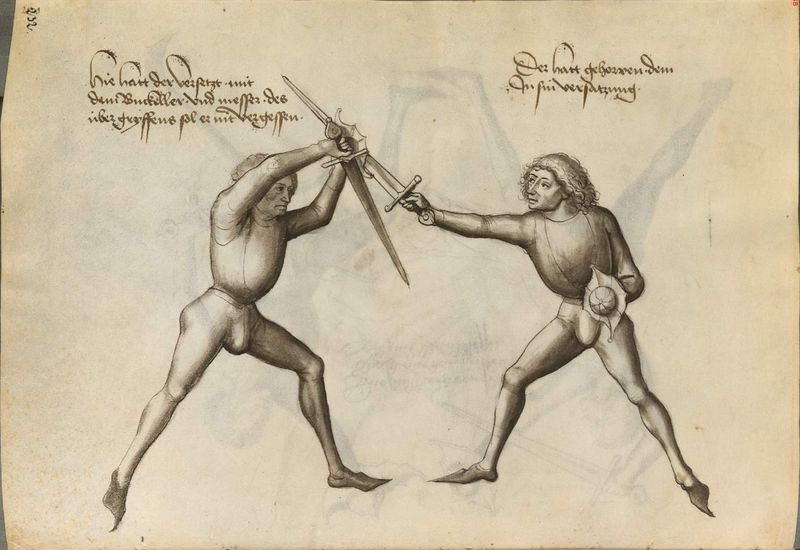 Hie hatt der versetzt mit
dem Buckller und messer des
über gryffens sol er nit vergessen.
Der hatt gehowen dem
In sin versatzung.